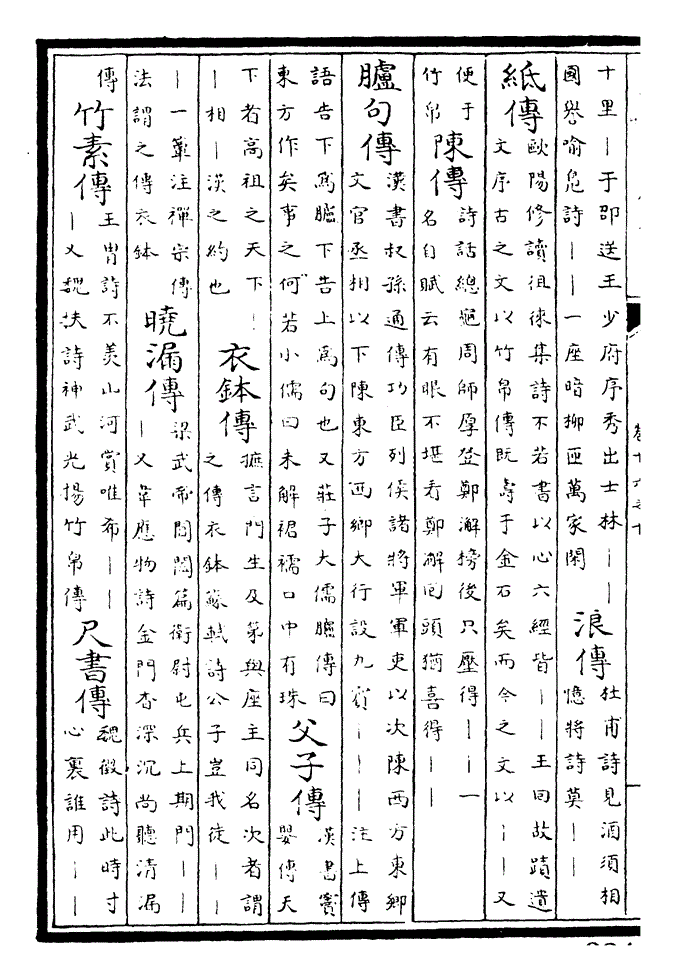 十里｜于邵送王少府序秀出士林｜｜
國譽喻鳧詩｜｜一座暗柳匝萬家閑
浪傳
杜甫詩見酒須相
憶將詩莫｜｜
紙傳
歐陽修讀徂徠集詩不若書以心六經皆｜｜王囘故蹟遺
文序古之文以竹帛傳既壽于金石矣而今之文以｜｜又
便于
竹帛
陳傳
詩話總龜周師厚登鄭獬榜後只壓得｜｜一
名自賦云有眼不堪看鄭獬囘頭猶喜得｜｜
臚句傳
漢書叔孫通傳功臣列侯諸將軍軍吏以次陳西方東鄉
文官丞相以下陳東方西鄉大行設九賓｜｜｜注上傳
語告下為臚下告上為句也又莊子大儒臚傳曰
東方作矣事之何若小儒曰未解裙襦口中有珠
父子傳
漢書竇
嬰傳天
下者高祖之天下｜
｜相｜漢之約也
衣鉢傳
摭言門生及第與座主同名次者謂
之傳衣鉢蘇軾詩公子豈我徒｜｜
｜一簞注禪宗傳
法謂之傳衣鉢
曉漏傳
梁武帝閶闔篇衛尉屯兵上期門｜｜
｜又韋應物詩金門杳深沉尚聽清漏
傳
竹素傳
王胄詩不羨山河賞唯希｜｜
｜又魏扶詩神武光揚竹帛傳
尺書傳
魏徵詩此時寸
心裏誰用｜｜